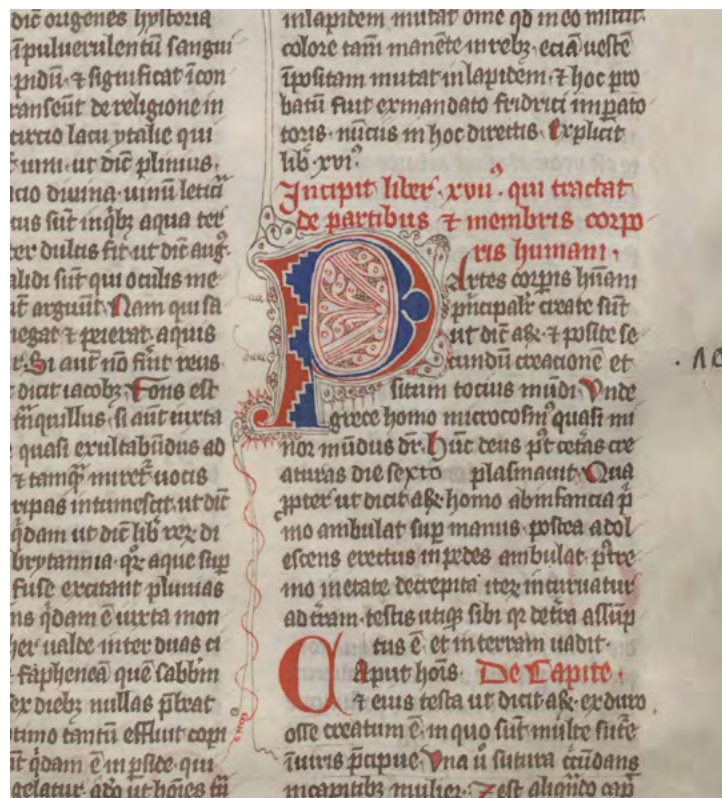 dic̄ origenes hystoria
īpuluerulentū sangui
pidū ⁊ significat icon
ranseūt de religione in
circio lacu ytalie qui
uini ut dic̄ plinius.
acio diuina uinū letici
tus sūt in qbz aqua ter
ter dulcis fit ut dic̄ aug.
alidi sūt qui oculis me
arguūt. Nam qui sa
negat ⁊ peierat aquis
Si aut nō fūit reus
dicit iacobz Fons est
trāquillus si aūt iuxta
quasi exultabūdus ad
⁊ tamq̄ miret uocis
ripas intumescit ut dic̄
q̄dam ut dic̄ lib rex di
brytannia qz aque sup
fuse excitant pluuias
ns q̄dam ē iuxta mon
her ualde inter duas ci
⁊ fapheneā quē sabbm
ex diebz nullas p̄bet
tantū effluit copi
q̄dam ē in pside qui
gelatur adō ut hoies
in lapidem mutat om̄e qd in eo mittit.
colore tam̄ manēte in rebz. eciā uestē
īpositam mutat in lapidem. ⁊ hoc pro
batū fuit ex mandato fridrici impato
toris. nūcius in hoc directis. Explicit
lib xvi⁹
Incipit liber xvii. qui tractat
de partibus ⁊ membris corpo
ris humani.
Partes corpis hūani
principalr create sūt
ut dic̄ aR. ⁊ posite se
cundū creacionē et
situm tocius mūdi. Vnde
grece homo microcosm⁹ quasi mi
nor mūdus dr̄. Hūc deus pt cetas cre
aturas die sexto plasmauit. Qua
ꝓpter ut dicit aR. homo ab infancia p̄
mo ambulat sup manus. postea adol
escens erectus in pedes ambulat. ptre
mo in etate decrepita itez incuruatur
ad trām. testis utiqz sibi qz de tra assūp
tus ē et in terram uadit.
Caput hoīs. De Capite.
⁊ eius testa ut dicit aR. ex duro
osse creatum ē. in quo sūt multe sutē
ī uiris p̄cipue. Vna ū sutura
in capitibz mulier. ⁊ est aliqn̄do cap